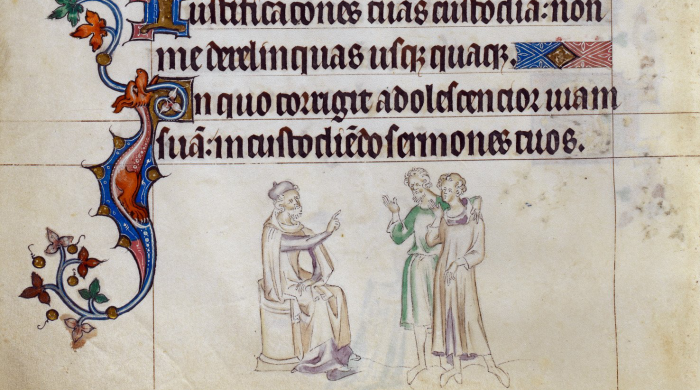 Iustificacones tuas custodia: non
me derelinquas usqꝫ quaqꝫ.
In quo corrigit adolescencior uiam
suā: in custodiēdo sermones tuos.